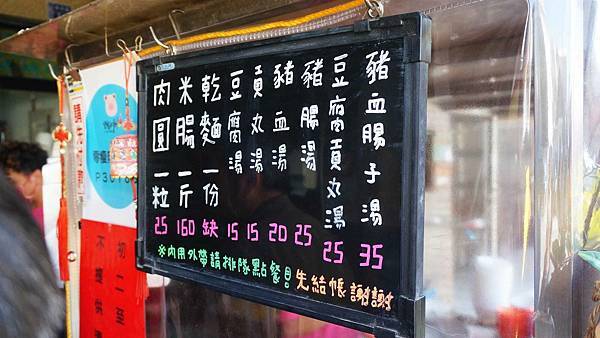 肉圓一粒 25
米腸一斤 160
乾麵一份 缺
豆腐湯 15
貢丸湯 15
豬血湯 20
豬腸湯 25
豆腐貢丸湯 25
豬血腸子湯 35
※內用外帶請排隊點餐且先結帳謝謝
請先付
初二至
不提供